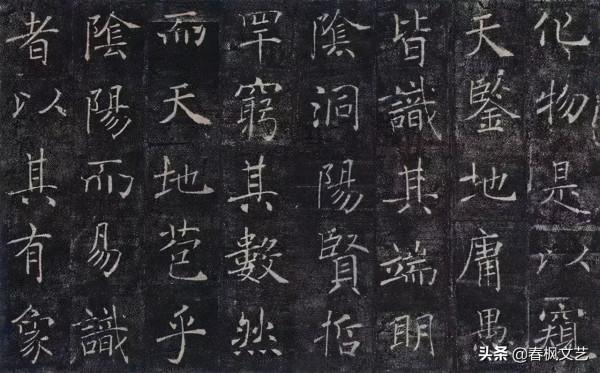 化物是以窺
天鑒地庸愚
皆識其端明
陰洞陽賢哲
罕窮其數然
而天地苞乎
陰陽而易識
者以其有象
头条 @春枫文艺